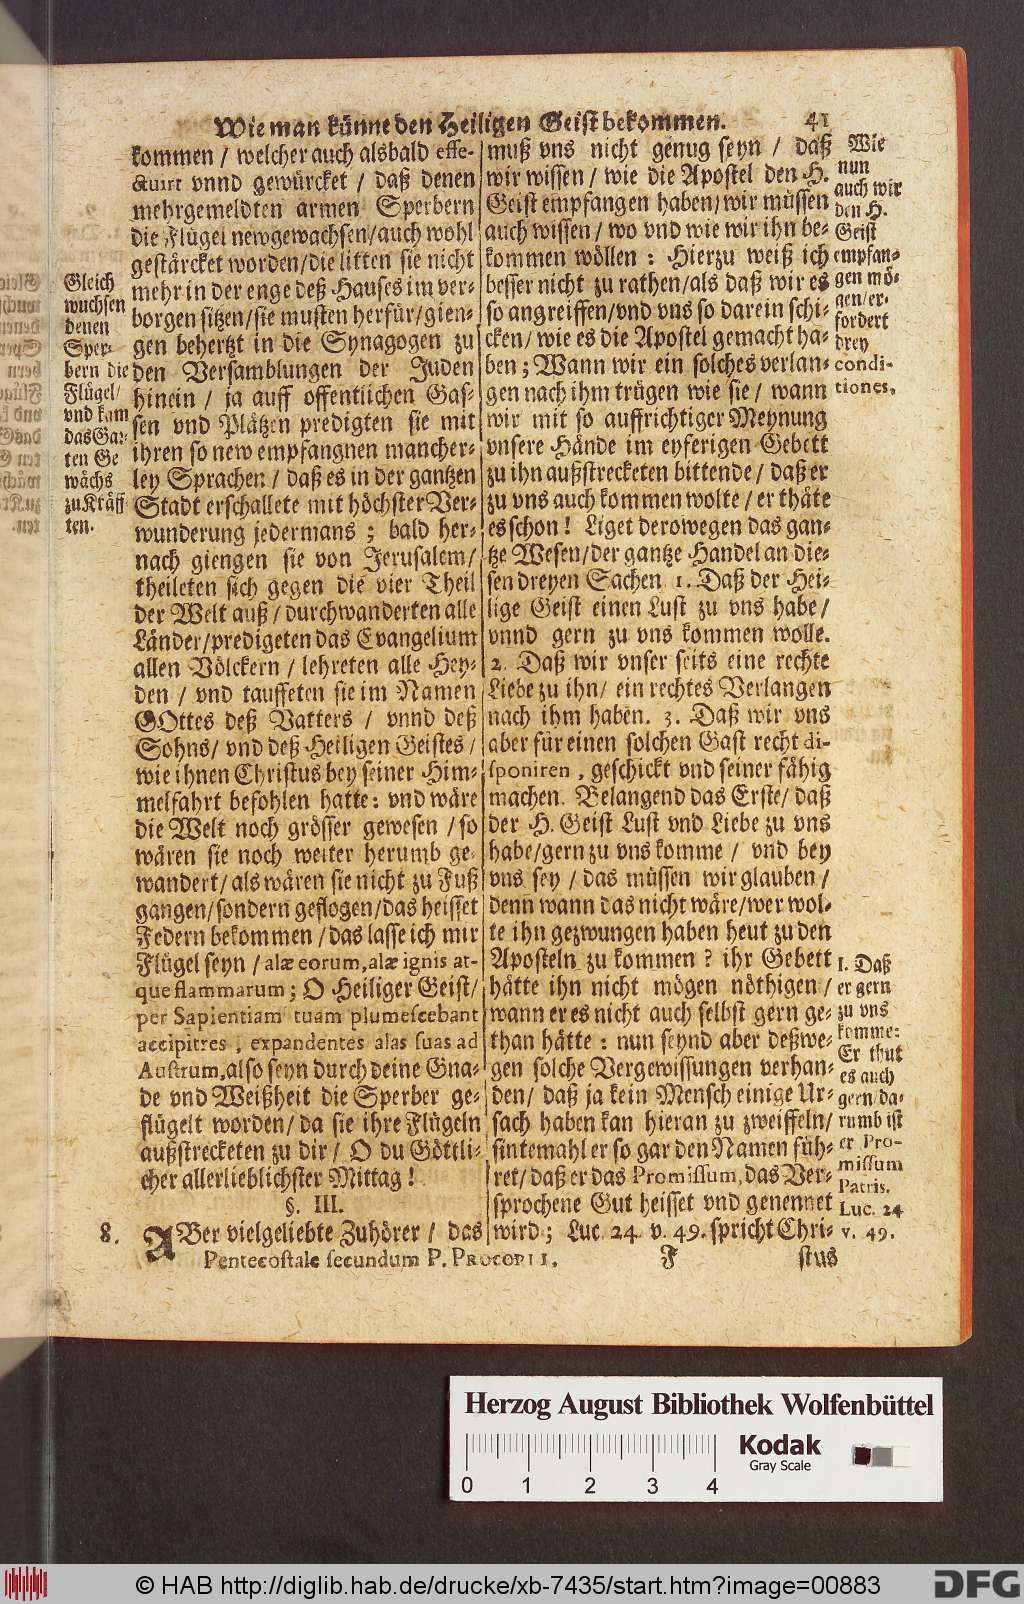 Wie man künne den Heiligen Geist bekommen. 41
kommen / welcher auch alsbald effe-
ctuirt vnnd gewürcket / daß denen
mehrgemeldten armen Sperbern
die Flügel newgewachsen/auch wohl
gestärcket worden/die litten sie nicht
mehr in der enge deß Hauses im ver-
borgen sitzen/sie musten herfür/gien-
gen behertzt in die Synagogen zu
den Versamblungen der Juden
hinein / ja auff offentlichen Gas-
sen vnd Plätzen predigten sie mit
ihren so new empfangnen mancher-
ley Sprachen / daß es in der gantzen
Stadt erschallete mit höchster Ver-
wunderung jedermans ; bald her-
nach giengen sie von Jerusalem/
theileten sich gegen die vier Theil
der Welt auß / durchwanderten alle
Länder/predigeten das Evangelium
allen Völckern / lehreten alle Hey-
den / vnd tauffeten sie im Namen
GOttes deß Vatters / vnnd deß
Sohns/ vnd deß Heiligen Geistes /
wie ihnen Christus bey seiner Him-
melfahrt befohlen hatte: vnd wäre
die Welt noch grösser gewesen / so
wären sie noch weiter herumb ge-
wandert/als wären sie nicht zu Fuß
gangen/sondern geflogen/das heisset
Federn bekommen / das lasse ich mir
Flügel seyn / alæ eorum, alæ ignis at-
que flammarum; O Heiliger Geist/
per Sapientiam tuam plumescebant
accipitres, expandentes alas suas ad
Austrum, also seyn durch deine Gna-
de vnd Weißheit die Sperber ge-
flügelt worden/ da sie ihre Flügeln
außstrecketen zu dir / O du Göttli-
cher allerlieblichster Mittag!
§. III.
8. ABer vielgeliebte Zuhörer / das
Pentecostale secundum P. PROCOPII.
Gleich
wuchsen
denen
Sper-
bern die
Flügel/
vnd kam
das Gar-
ten Ge
wächs
zu Kräff
ten.
muß vns nicht genug seyn / daß
wir wissen / wie die Apostel den H.
Geist empfangen haben/ wir müssen
auch wissen / wo vnd wie wir ihn be-
kommen wöllen : Hierzu weiß ich
besser nicht zu rathen/als daß wir es
so angreiffen/vnd vns so darein schi-
cken/ wie es die Apostel gemacht ha-
ben ; Wann wir ein solches verlan-
gen nach ihm trügen wie sie / wann
wir mit so auffrichtiger Meynung
vnsere Hände im eyferigen Gebett
zu ihn außstrecketen bittende / daß er
zu vns auch kommen wolte / er thäte
es schon! Liget derowegen das gan-
tze Wesen/der gantze Handel an die-
sen dreyen Sachen 1. Daß der Hei-
lige Geist einen Lust zu vns habe /
vnnd gern zu vns kommen wolle.
2. Daß wir vnser seits eine rechte
Liebe zu ihn/ ein rechtes Verlangen
nach ihm haben. 3. Daß wir vns
aber für einen solchen Gast recht di-
sponiren, geschickt vnd seiner fähig
machen. Belangend das Erste/ daß
der H. Geist Lust vnd Liebe zu vns
habe/gern zu vns komme / vnd bey
vns sey / das müssen wir glauben /
denn wann das nicht wäre/wer wol-
te ihn gezwungen haben heut zu den
Aposteln zu kommen ? ihr Gebett
hätte ihn nicht mögen nöthigen /
wann er es nicht auch selbst gern ge-
than hätte : nun seynd aber deßwe-
gen solche Vergewissungen verhan-
den/ daß ja kein Mensch einige Ur-
sach haben kan hieran zu zweiffeln/
sintemahl er so gar den Namen füh-
ret/daß er das Promissum, das Ver-
sprochene Gut heisset vnd genennet
wird; Luc. 24. v. 49. spricht Chri-
F stus
Wie
nun
auch wir
den H.
Geist
empfan-
gen mö-
gen/er-
fordert
drey
condi-
tiones,
1. Daß
er gern
zu vns
komme:
Er thut
es auch
gern/da-
rumb ist
er Pro-
missum
Patris.
Luc. 24
v. 49.
Herzog August Bibliothek Wolfenbüttel
Kodak
Gray Scale
0 1 2 3 4
© HAB http://diglib.hab.de/drucke/xb-7435/start.htm?image=00883
DFG